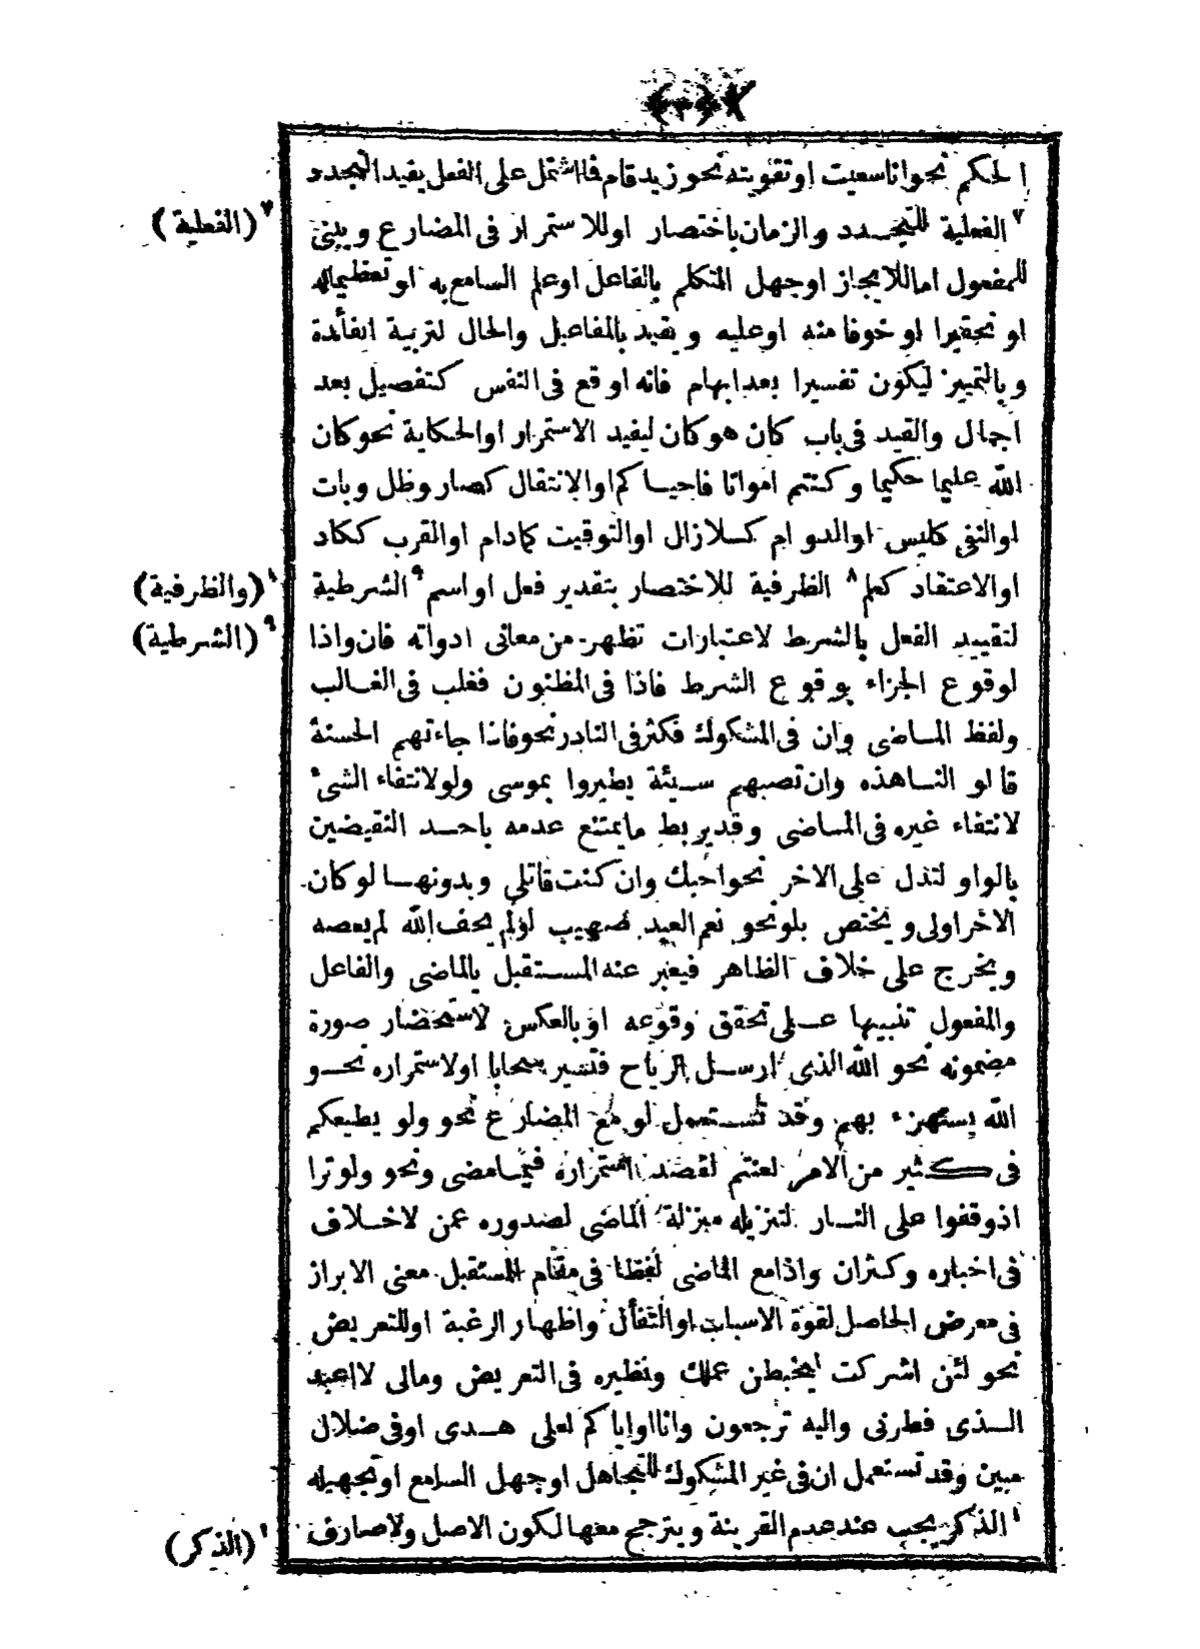 الحكم نحو انا سعيت او تقويته نحو زيد قام فما اشتمل على الفعل يفيد التجدد
٧ الفعلية للتجدد والزمان باختصار او للاستمرار فى المضارع ويبنى
٧ (الفعلية)
للمفعول اما للايجاز او جهل المتكلم بالفاعل او علم السامع به او تعظيما له
او تحقيرا او خوفا منه او عليه ويقيد بالمفاعيل والحال لتربية الفائدة
وبالتمييز ليكون تفسيرا بعد ابهام فانه اوقع فى النفس كتفصيل بعد
اجمال والقيد فى باب كان هو كان ليفيد الاستمرار او الحكاية نحو كان
الله عليما حكيما وكنتم امواتا فاحياكم او الانتقال كصار وظل وبات
او النفى كليس او الدوام كلازال او التوقيت كمادام او القرب ككاد
او الاعتقاد كعلم ٨ الظرفية للاختصار بتقدير فعل او اسم ٩ الشرطية
٨ (والظرفية)
لتقييد الفعل بالشرط لاعتبارات تظهر من معانى ادواته فان واذا
٩ (الشرطية)
لوقوع الجزاء بوقوع الشرط فاذا فى المظنون فغلب فى الغالب
ولفظ الماضى وان فى المشكوك فكثر فى النادر نحو فاذا جاءتهم الحسنة
قالو النا هذه وان تصبهم سيئة يطيروا بموسى ولو لانتفاء الشئ
لانتفاء غيره فى الماضى وقد يربط ما يمتنع عدمه باحد النقيضين
بالواو لتدل على الاخر نحو احبك وان كنت قاتلى وبدونها لو كان
الاخر اولى ويختص بلو نحو نعم العبد صهيب لو لم يخف الله لم يعصه
ويخرج على خلاف الظاهر فيعبر عنه المستقبل بالماضى والفاعل
والمفعول تنبيها على تحقق وقوعه او بالعكس لاستحضار صورة
مضمونه نحو الله الذى ارسل الرياح فتثير سحابا او لاستمراره نحو
الله يستهزء بهم وقد تستعمل لو مع المضارع نحو ولو يطيعكم
فى كثير من الامر لعنتم لقصد استمراره فيما مضى ونحو ولو ترا
اذ وقفوا على النار لتنزيله منزلة الماضى لصدوره عمن لا خلاف
فى اخباره وكثران واذا مع الماضى لفظا فى مقام المستقبل معنى الابراز
فى معرض الحاصل لقوة الاسباب او التفأل واظهار الرغبة او للتعريض
نحو لئن اشركت ليحبطن عملك ونظيره فى التعريض ومالى لا اعبد
الذى فطرنى واليه ترجعون وانا او اياكم لعلى هدى او فى ضلال
مبين وقد تستعمل ان فى غير المشكوك للتجاهل او جهل السامع او تجهيله
١ الذكر يجب عند عدم القرينة ويترجح معها لكون الاصل ولا صارف
١ (الذكر)